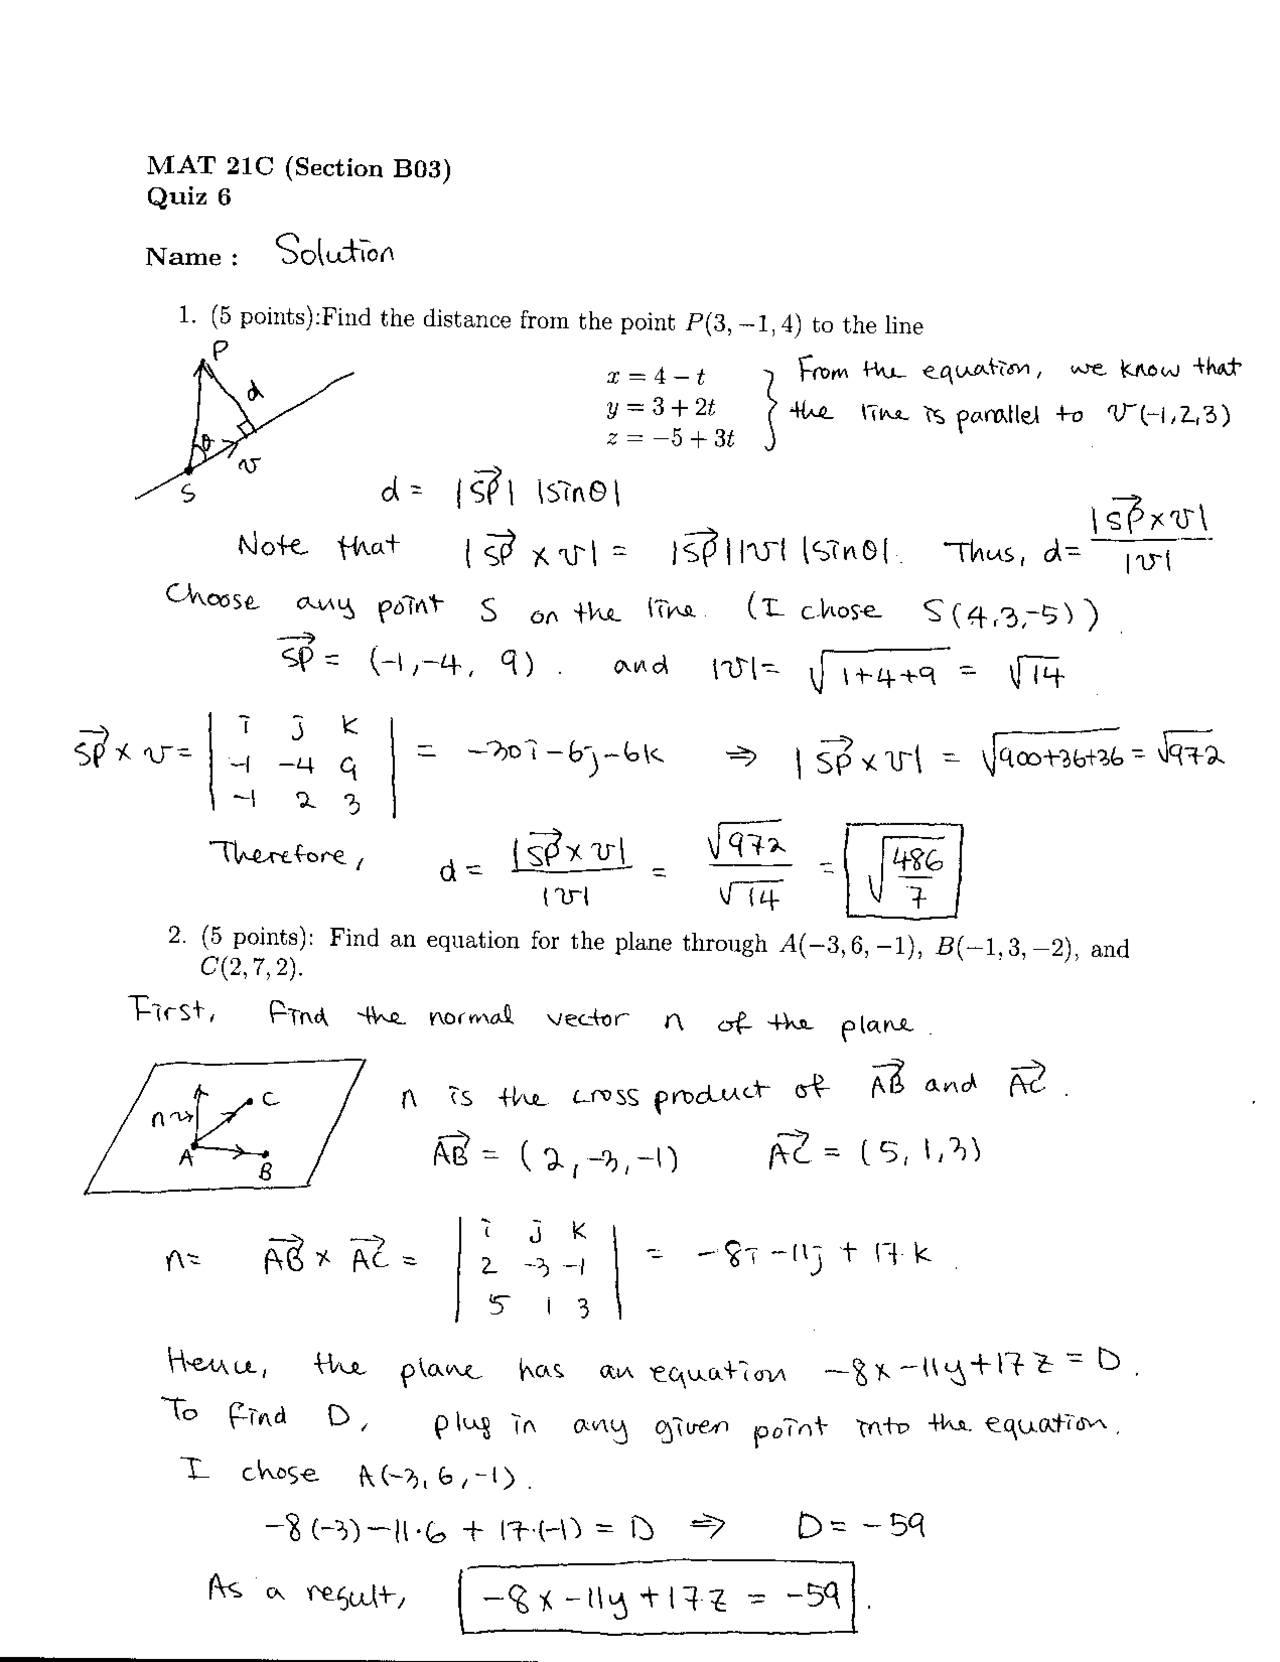 MAT 21C (Section B03)
Quiz 6
Name : Solution
1. (5 points):Find the distance from the point P(3, −1, 4) to the line
P
d
θ
v
S
x = 4 − t
y = 3 + 2t
z = −5 + 3t
From the equation, we know that
the line is parallel to v(-1,2,3)
d = |SP→| |sinθ|
Note that |SP→ × v| = |SP→||v| |sinθ|. Thus, d = |SP→ × v| / |v|
Choose any point S on the line. (I chose S(4,3,-5)).
SP→ = (-1,-4, 9). and |v| = √(1+4+9) = √14
SP→ × v = | i j k | = -30i-6j-6k ⇒ |SP→ × v| = √(900+36+36) = √972
-1 -4 9
-1 2 3
Therefore, d = |SP→ × v| / |v| = √972 / √14 = √(486/7)
2. (5 points): Find an equation for the plane through A(−3, 6, −1), B(−1, 3, −2), and
C(2, 7, 2).
First, find the normal vector n of the plane.
n
C
A
B
n is the cross product of AB→ and AC→.
AB→ = (2, -3, -1) AC→ = (5, 1, 3)
n = AB→ × AC→ = | i j k | = -8i -11j + 17k.
2 -3 -1
5 1 3
Hence, the plane has an equation -8x-11y+17z = D.
To find D, plug in any given point into the equation.
I chose A(-3, 6, -1).
-8(-3)-11·6 + 17·(-1) = D ⇒ D = -59
As a result, -8x-11y+17z = -59.